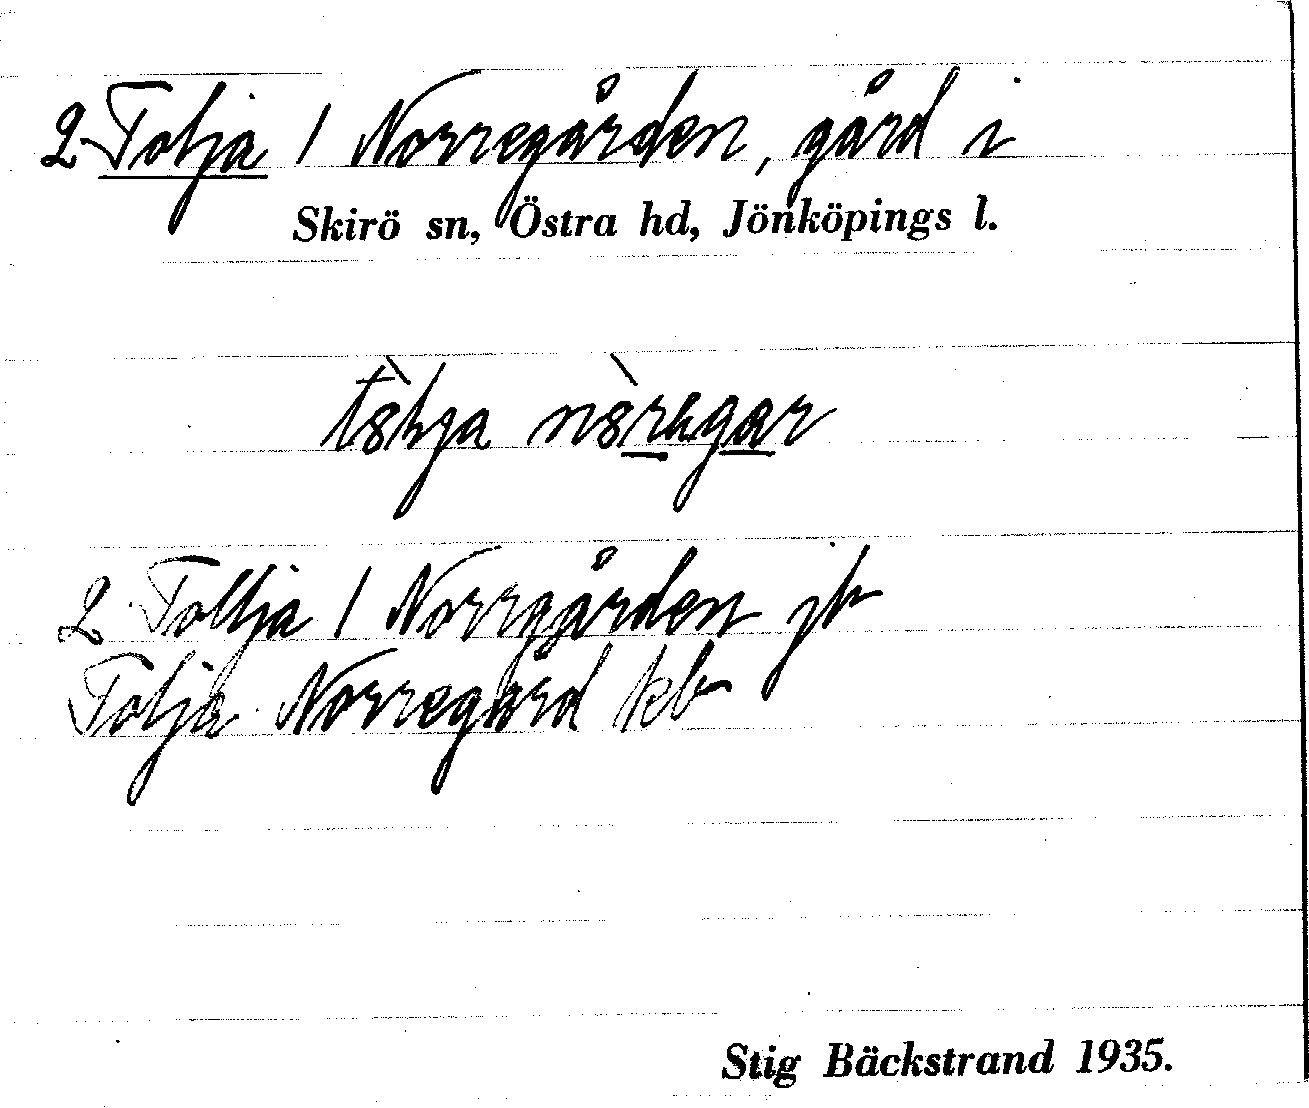 2 Tolja / Norregården, gård i
Skirö sn, Östra hd, Jönköpings l.
2 Tollja / Norrgården jb
Tolja Norregård kb
Stig Bäckstrand 1935.